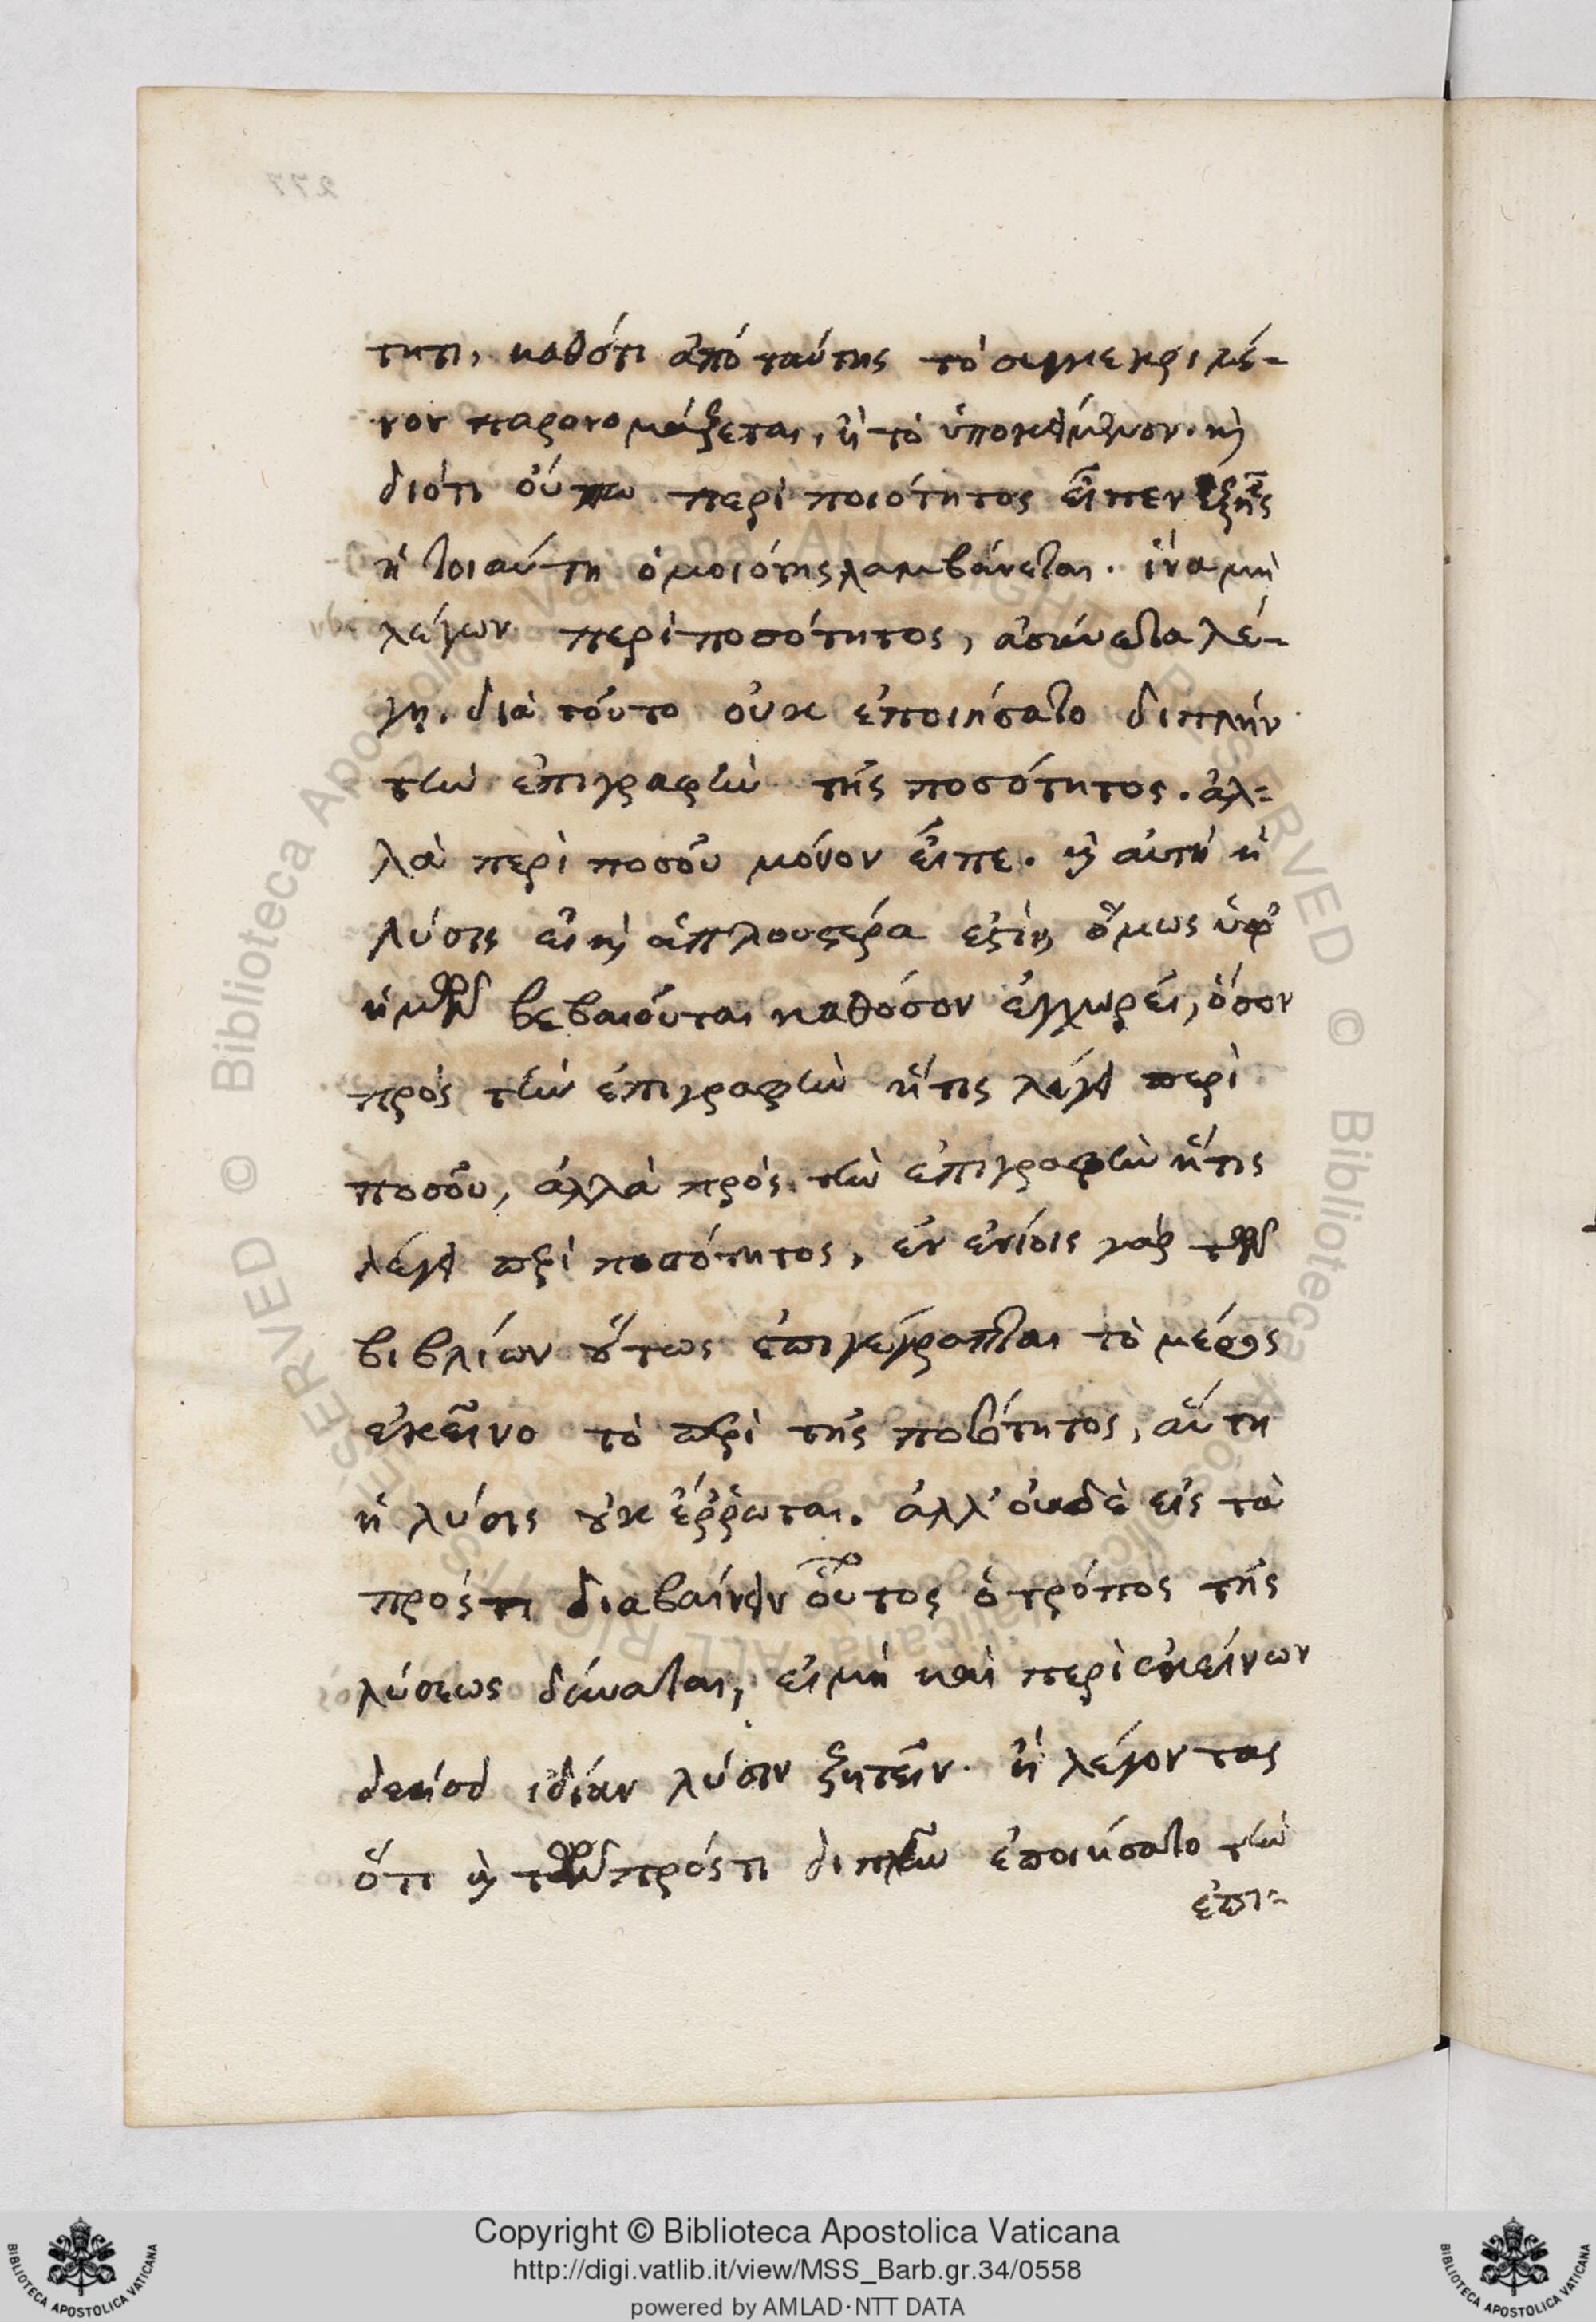 τητι, καθότι ἀπό ταύτης τὸ συγκεκριμέ-
νον παρονομάζεται, ἢ τὸ ὑποκείμενον. καὶ
διότι οὔπω περὶ ποιότητος εἶπεν ἐξῆς
ἡ τοιαύτη ὁμοιότης λαμβάνεται. ἵνα μὴ
λέγων περὶ ποσότητος, ἀσύνετα λέ-
γῃ. διὰ τοῦτο οὐκ ἐποιήσατο διπλήν
τὴν ἐπιγραφὴν τῆς ποσότητος. ἀλ-
λὰ περὶ ποσοῦ μόνον εἶπε. καὶ αὐτὴ ἡ
λύσις εἰ καὶ ἁπλουστέρα ἐστὶν, ὅμως ὑφ'
ἡμῶν βεβαιοῦται καθόσον ἐγχωρεῖ, ὅσον
πρὸς τὴν ἐπιγραφὴν ἥτις λέγει περὶ
ποσοῦ, ἀλλὰ πρὸς τὴν ἐπιγραφὴν ἥτις
λέγει περὶ ποσότητος, ἐν ἐνίοις γὰρ τῶν
βιβλίων οὕτως ἐπιγέγραπται τὸ μέρος
ἐκεῖνο τὸ περὶ τῆς ποσότητος, αὕτη
ἡ λύσις οὐκ ἔῤῥωται. ἀλλ' οὐδὲ εἰς τὰ
πρόςτι διαβαίνειν οὗτος ὁ τρόπος τῆς
λύσεως δύναται, εἰμὴ καὶ περὶ ἐκείνων
δεήσει ἰδίαν λύσιν ζητεῖν. ἢ λέγοντας
ὅτι καὶ τῶν πρόςτι διπλῆν ἐποιήσατο τὴν
ἐπι-
Copyright © Biblioteca Apostolica Vaticana
http://digi.vatlib.it/view/MSS_Barb.gr.34/0558
powered by AMLAD·NTT DATA